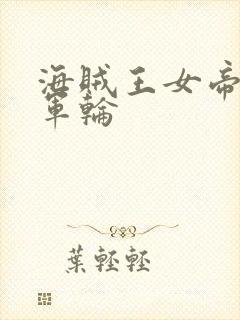 海賊王女帝
軍輪
葉輕輕